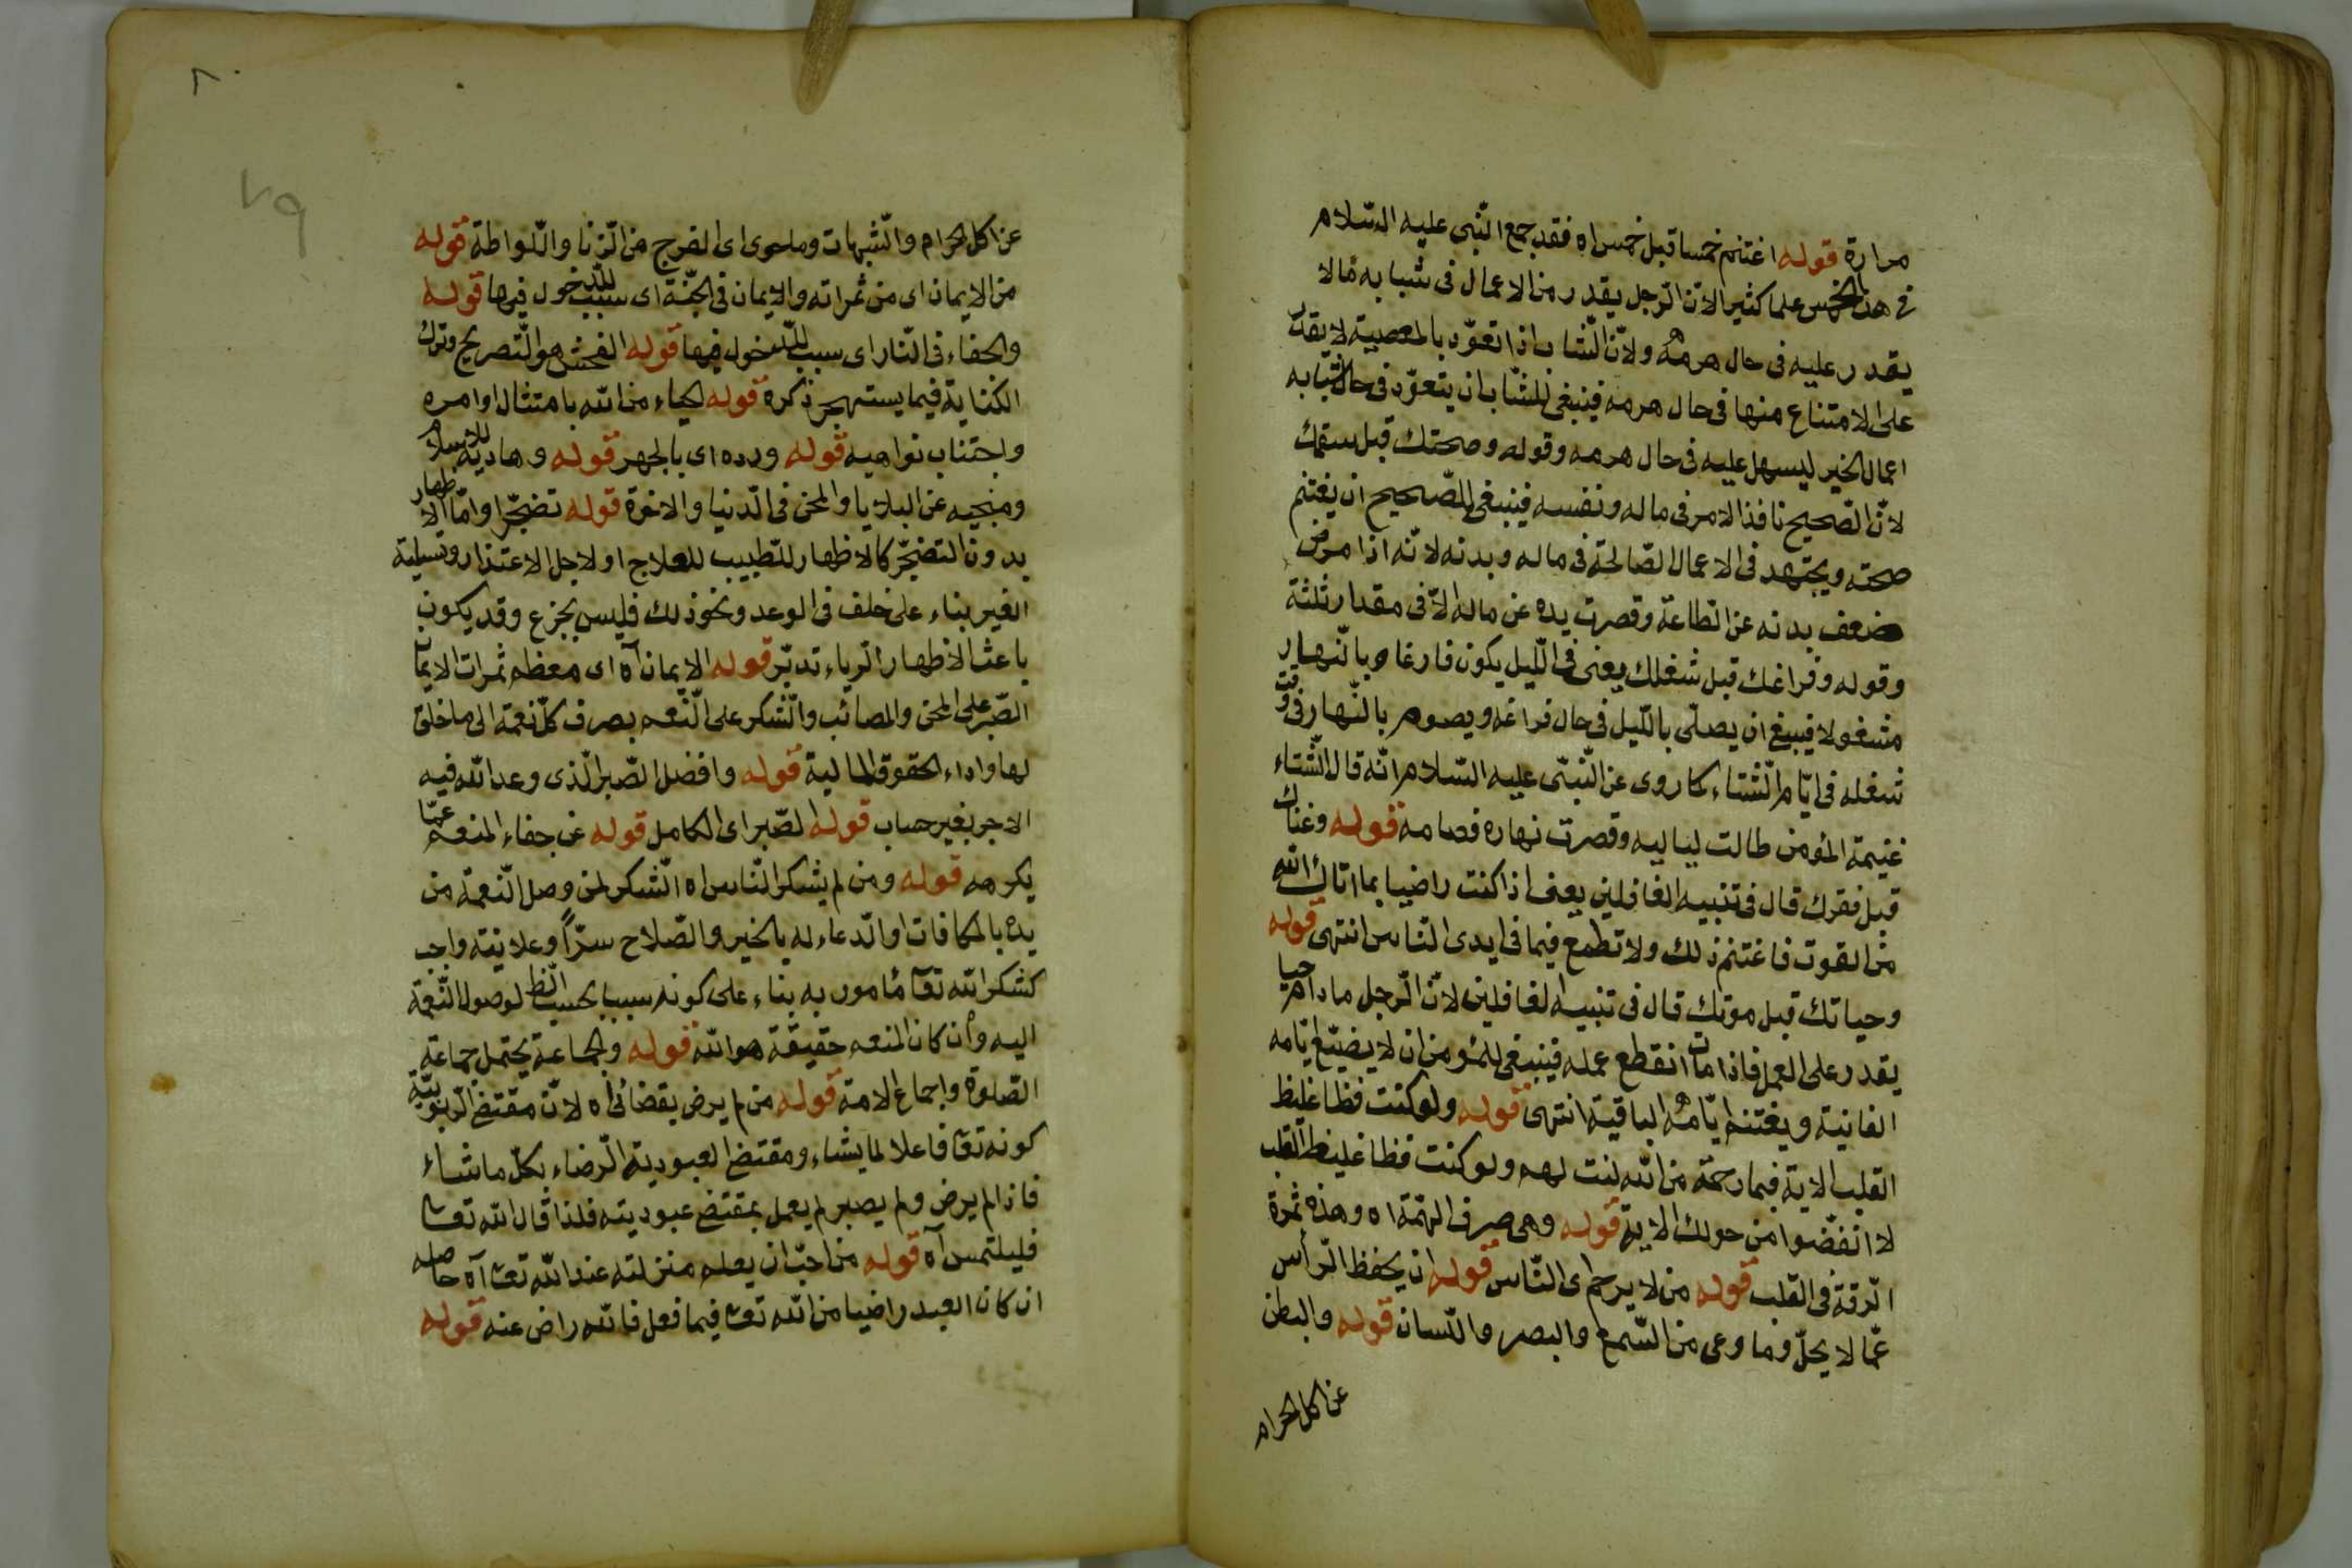 مرارة قوله اغتنم خمسا قبل خمس اه فقد جمع النّبى عليه السّلام
فى هذا الخمس علما كثيرا لانّ الرّجل يقدر من الاعمال فى شبابه مالا
يقدر عليه فى حال هرمه ولانّ الشّاب اذا تعوّد بالمعصية لا يقدر
على الامتناع منها فى حال هرمه فينبغى للشّاب ان يتعوّد فى حال شبابه
اعمال الخير ليسهل عليه فى حال هرمه وقوله وصحتك قبل سقمك
لانّ الصّحيح نافذ الامر فى ماله ونفسه فينبغى للصّحيح ان يغتنم
صحته ويجتهد فى الاعمال الصّالحة فى ماله وبدنه لانّه اذا مرض
ضعف بدنه عن الطاعة وقصرت يده عن ماله الاّ فى مقدار ثلثة
وقوله وفراغك قبل شغلك يعنى فى اللّيل يكون فارغا وبالنّهار
مشغولا فيبغ ان يصلّى باللّيل فى حال فراغه ويصوم بالنّهار فى وقت
شغله فى ايّام الشّتاء كما روى عن النّبىّ عليه السّلام انّه قال الشّتاء
غنيمة المؤمن طالت لياليه وقصرت نهاره فصامه قوله وغناك
قبل فقرك قال فى تنبيه الغافلين يعنى اذا كنت راضيا بما اتاك الله
من القوت فاغتنم ذلك ولا تطمع فيما فى ايدى النّاس انتهى قوله
وحياتك قبل موتك قال فى تنبيه الغافلين لانّ الرّجل مادام حيا
يقدر على العمل فاذا مات انقطع عمله فينبغى للمؤمن ان لا يضيّع ايّامه
الفانية ويغتنم ايّامه الباقية انتهى قوله ولو كنت فظا غليظ
القلب الاية فبما رحمة من الله لنت لهم ولو كنت فظا غليظ القلب
لا انفضّوا من حولك الاية قوله وهى صرف الهمّة اه وهذه ثمرة
الرّقة فى القلب قوله من لا يرحم اى النّاس قوله ان يحفظ الرّأس
عمّا لا يحلّ وما وعى من السّمع والبصر واللّسان قوله والبطن
عن اكل الحرام
٨٠
٧٩
عن اكل الحرام والشّبهات وما حوى اى الفرج من الزّنا واللّواطة قوله
من الايمان اى من ثمراته والايمان فى الجنّة اى سبب للدّخول فيها قوله
والجفاء فى النّار اى سبب للدّخول فيها قوله الفحش هو التّصريح وترك
الكناية فيما يستهجن ذكره قوله الحياء من الله بامتثال اوامره
واجتناب نواهيه قوله ورده اى بالجهر قوله وهاديه للاسلام
ومنجيه عن البلايا والمحن فى الدّنيا والاخرة قوله تضجّرا وامّا الاظهار
بدون التضجّر كالاظهار للطّبيب للعلاج او لاجل الاعتذار وتسلية
الغير بناء على خلف فى الوعد ونحو ذلك فليس بجزع وقد يكون
باعث الاظهار الرّياء تدبّر قوله الايمان آه اى معظم ثمرات الايمان
الصّبر على المحن والمصائب والشّكر على النّعم بصرف كلّ نعمة الى ما خلق
لها واداء الحقوق المالية قوله وافضل الصّبر الّذى وعد الله فيه
الاجر بغير حساب قوله الصّبر اى الكامل قوله عن جفاء المنعم عمّا
يكرهه قوله ومن لم يشكر النّاس اه الشّكر لمن وصل النّعمة من
يده بالمكافات او الدّعاء له بالخير والصّلاح سرّاً وعلانية واجب
كشكر الله تعا مأمور به بناء على كونه سببا بحسب الظّ لوصول النّعمة
اليه وان كان المنعم حقيقة هو الله قوله والجماعة يحتمل جماعة
الصّلوة واجماع الامة قوله من لم يرض بقضائى اه لانّ مقتضى الرّبوبيّة
كونه تعا فاعلا لما يشاء ومقتضى العبودية الرّضاء بكلّ ما شاء
فاذا لم يرض ولم يصبر لم يعمل بمقتضى عبوديته فلذا قال الله تعا
فليلتمس آه قوله من احبّ ان يعلم منزلته عند الله تعا آه حاصله
ان كان العبد راضيا من الله تعا فيما فعل فالله راض عنه قوله